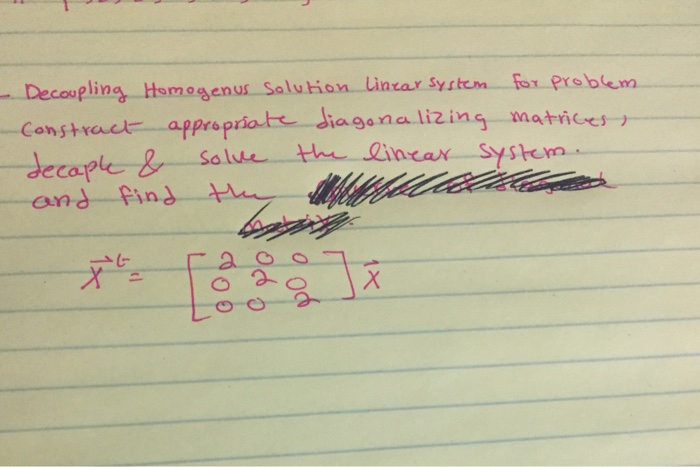 - Decoupling Homogenus Solution Linear System for problem
Constract appropriate diagonalizing matrices,
decaple & solve the linear system.
and find the
x⃗' = [ 2 0 0
0 2 0
0 0 2 ] x⃗